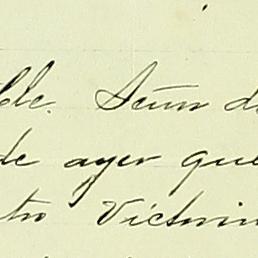 ble. Señor d
de ayer que
tro Victori